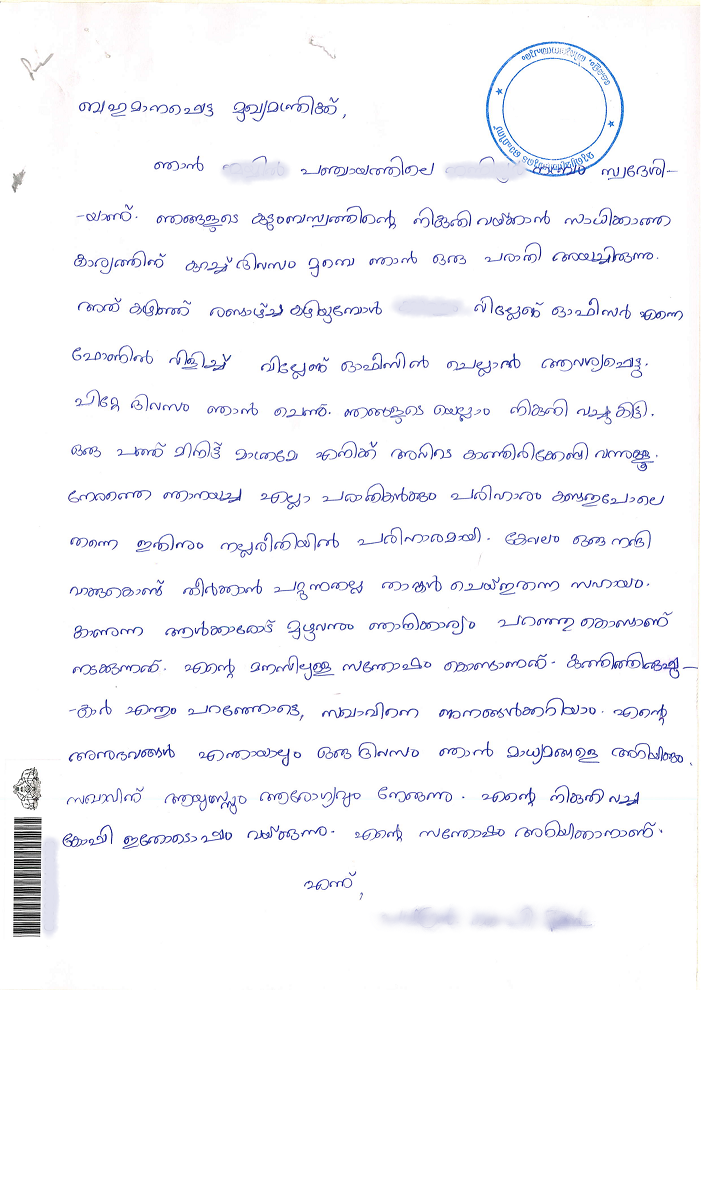 ബഹുമാനപ്പെട്ട മുഖ്യമന്ത്രിക്ക്,
ഞാൻ പഞ്ചായത്തിലെ സ്വദേശി-
-യാണ്. ഞങ്ങളുടെ കുടുംബസ്വത്തിന്റെ നികുതി വയ്ക്കാൻ സാധിക്കാത്ത
കാര്യത്തിന് കുറച്ച് ദിവസം മുമ്പെ ഞാൻ ഒരു പരാതി അയച്ചിരുന്നു.
അത് കഴിഞ്ഞ് രണ്ടാഴ്ച്ച കഴിയുമ്പോൾ വില്ലേജ് ഓഫീസർ എന്നെ
ഫോണിൽ വിളിച്ച് വില്ലേജ് ഓഫീസിൽ ചെല്ലാൻ ആവശ്യപ്പെട്ടു.
പിറ്റേ ദിവസം ഞാൻ ചെന്നു. ഞങ്ങളുടെ യെല്ലാം നികുതി വച്ചു കിട്ടി.
ഒരു പത്ത് മിനിട്ട് മാത്രമേ എനിക്ക് അവിടെ കാത്തിരിക്കേണ്ടി വന്നുള്ളൂ.
നേരത്തെ ഞാനയച്ച എല്ലാ പരാതികൾക്കും പരിഹാരം കണ്ടതുപോലെ
തന്നെ ഇതിനും നല്ലരീതിയിൽ പരിഹാരമായി. കേവലം ഒരു നന്ദി
വാക്കുകൊണ്ട് തീർക്കാൻ പറ്റുന്നതല്ല താങ്കൾ ചെയ്തുതന്ന സഹായം.
കാണുന്ന ആൾക്കാരോട് മുഴുവനും ഞാനിക്കാര്യം പറഞ്ഞു കൊണ്ടാണ്
നടക്കുന്നത്. എന്റെ മനസിലുള്ള സന്തോഷം കൊണ്ടാണത്.
-കാർ എന്തും പറഞ്ഞോട്ടെ, സഖാവിനെ ജനങ്ങൾക്കറിയാം. എന്റെ
അനുഭവങ്ങൾ എന്തായാലും ഒരു ദിവസം ഞാൻ മാധ്യമങ്ങളെ അറിയിക്കും.
സഖാവിന് ആയുസ്സും ആരോഗ്യവും നേരുന്നു. എന്റെ നികുതി വച്ച
കോപ്പി ഇതോടൊപ്പം വയ്ക്കുന്നു. എന്റെ സന്തോഷം അറിയിക്കാനാണ്.
എന്ന്,